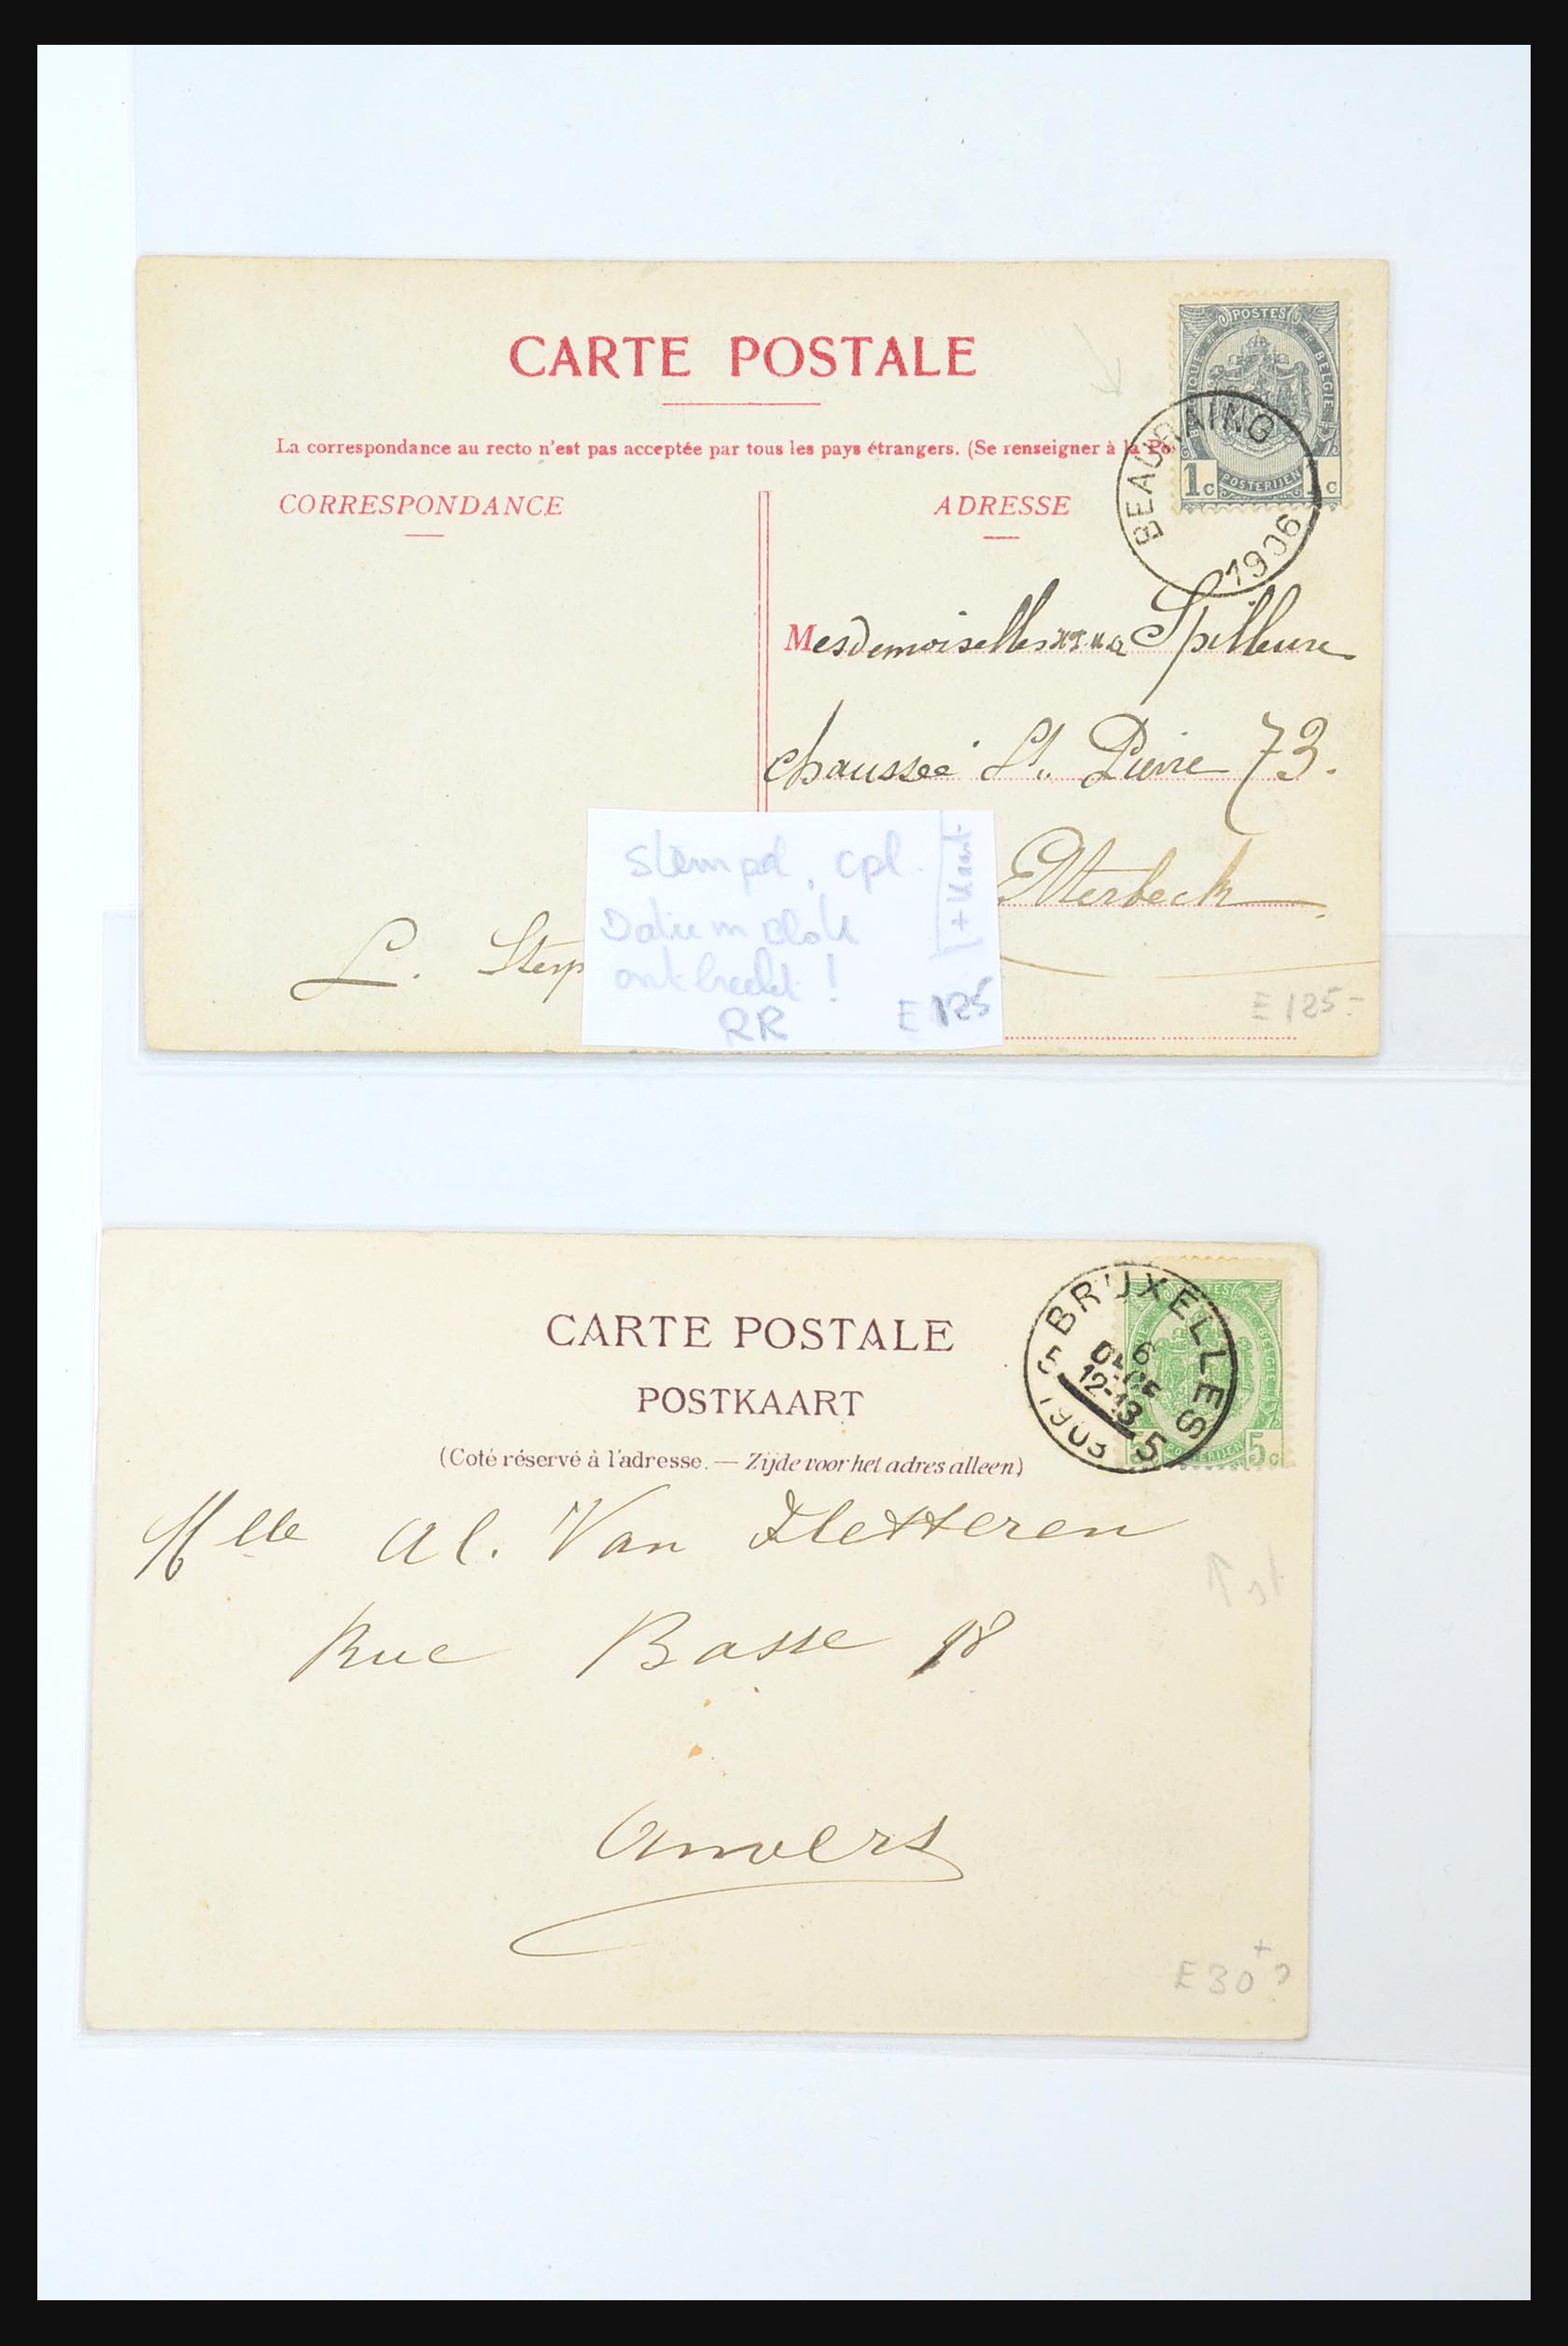 CARTE POSTALE
La correspondance au recto n'est pas acceptée par tous les pays étrangers. (Se renseigner à la Po
CORRESPONDANCE
ADRESSE
POSTES
BELGIQUE
BELGIE
1c POSTERIJEN 1c
BEAURAING
1906
Mesdemoiselles Spilleure
chaussée St. Pierre 73.
Etterbeck
L. Sterp
stempel, cpl.
Datum blok
ontbreekt!
RR
+ Kaart
E 125
E 125.-
CARTE POSTALE
POSTKAART
(Coté réservé à l'adresse. — Zijde voor het adres alleen)
BRUXELLES
5 5
6
12-13
1903
POSTERIJEN 5c
BELGIE
Mlle Al. Van Hletteren
Rue Basse 18
Anvers
↑ st
E 30 + ?